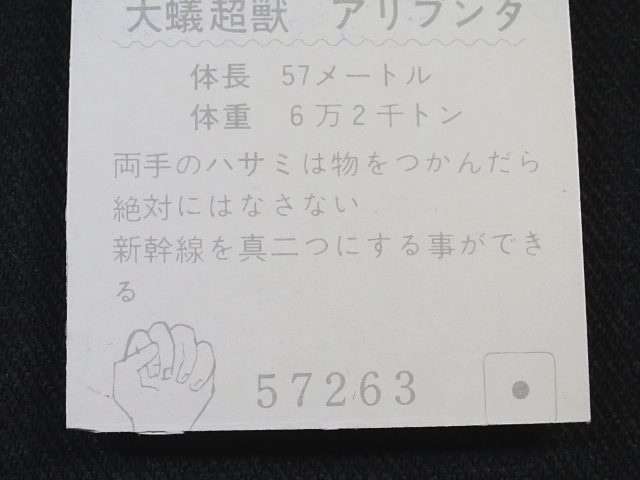 大蟻超獣　アリブンタ
体長　57メートル
体重　6万2千トン
両手のハサミは物をつかんだら
絶対にはなさない
新幹線を真二つにする事ができ
る
57263